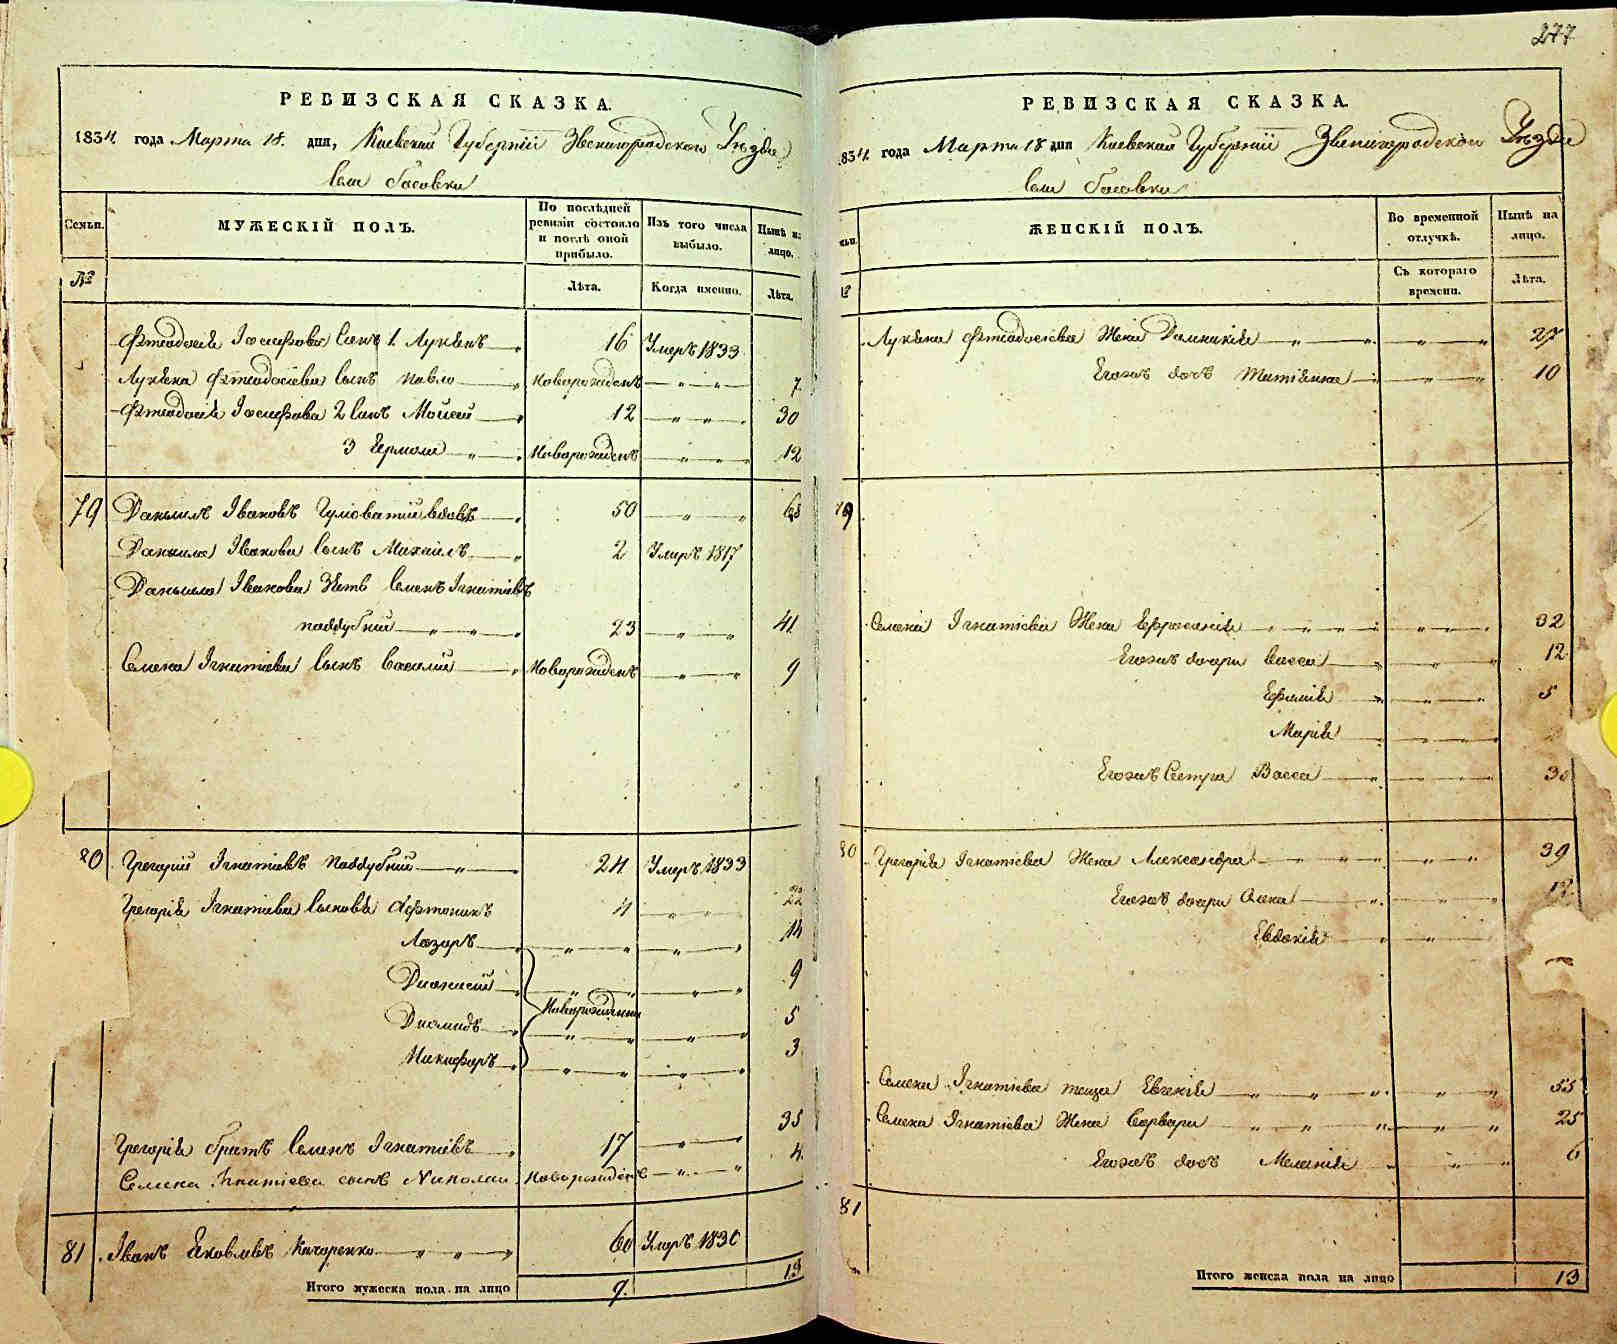 277
РЕВИЗСКАЯ СКАЗКА.
1834 года Марта 18 дня, Киевской Губернии Звенигородскаго Уѣзда
села Босовки
Семьи. МУЖЕСКІЙ ПОЛЪ. По послѣдней ревизіи состояло и послѣ оной прибыло. Изъ того числа выбыло. Нынѣ на лицо.
№ Лѣта. Когда именно. Лѣта.
Фтеодосія Іосифова Сынъ 1. Лукіянъ 16 Умеръ 1833
Лукіяна Фтеодосіева сынъ Павло Новорожденъ 7
Фтеодосія Іосифова 2 Сынъ Моисей 12 30
3 Ермола Новорожденъ 12
79 Данилъ Івановъ вдовъ 50 68
Данила Іванова сынъ Михаилъ 2 Умеръ 1817
Данила Іванова Зять Семенъ Ігнатіевъ
Поддубный 23 41
Семена Ігнатіева сынъ Василій Новорожденъ 9
80 Григорій Ігнатіевъ Поддубный 24 Умеръ 1833
Григорія Ігнатіева сыновья Афтономъ 4 22
Лазаръ 14
Дионисій 9
Новорожденны
Диомидъ 5
Никифоръ 3
Григорія братъ Семенъ Ігнатіевъ 17 35
Семена Ігнатіева сынъ Николай Новорожденъ 4
81 Іванъ Яковлевъ Качоренко 60 Умеръ 1830
Итого мужеска пола на лицо 9. 13
РЕВИЗСКАЯ СКАЗКА.
834 года Марта 18 дня Киевской Губерніи Звенигородскаго Уѣзда
села Босовки
ЖЕНСКІЙ ПОЛЪ. Во временной отлучкѣ. Нынѣ на лицо.
Съ котораго времени. Лѣта.
Лукіяна Фтеодосіева Жена Домникія 27
Егожъ дочь Татіянна 10
79
Семена Ігнатіева Жена Ефросинія 32
Егожъ дочери Васса 12
Ефимія 5
Марія
Егожъ Сестра Васса 30
80 Григорія Ігнатіева Жена Александра 39
Егожъ дочери Анна 12
Евдокія
Семена Ігнатіева теща Евгенія 55
Семена Ігнатіева Жена Варвара 25
Егожъ дочь Меланія 6
81
Итого женска пола на лицо 13